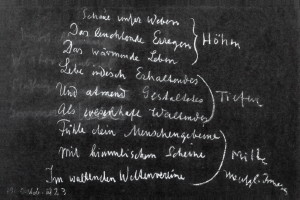 Schöne unser Weben
Das leuchtende Erregen
Das wärmende Leben
Höhen
Lebe irdisch Erhaltendes
Und atmend Gestaltetes
Als wesenhaft Waltendes
Tiefen
Fühle dein Menschengebeine
Mit himmlischem Scheine
Im waltenden Weltenvereine
Mitte
23